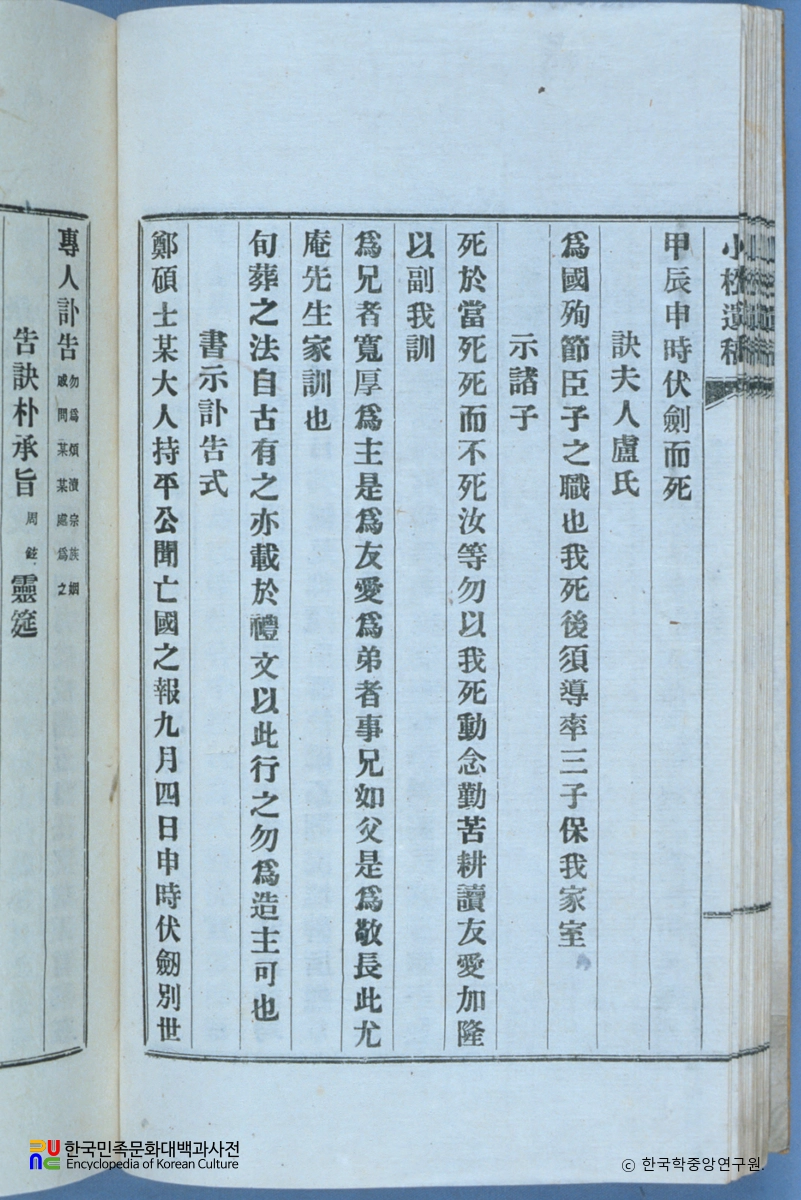 甲辰申時伏劍而死
訣夫人盧氏
爲國殉節臣子之職也我死後須導率三子保我家室
示諸子
死於當死死而不死汝等勿以我死動念勤苦耕讀友愛加隆
以副我訓
爲兄者寬厚爲主是爲友愛爲弟者事兄如父是爲敬長此尤
庵先生家訓也
旬葬之法自古有之亦載於禮文以此行之勿爲造主可也
書示訃告式
鄭碩士某大人持平公聞亡國之報九月四日申時伏劒別世
專人訃告 勿爲煩瀆宗族姻戚問某某處爲之
告訣朴承旨 周 靈筵
한국민족문화대백과사전
Encyclopedia of Korean Culture
© 한국학중앙연구원